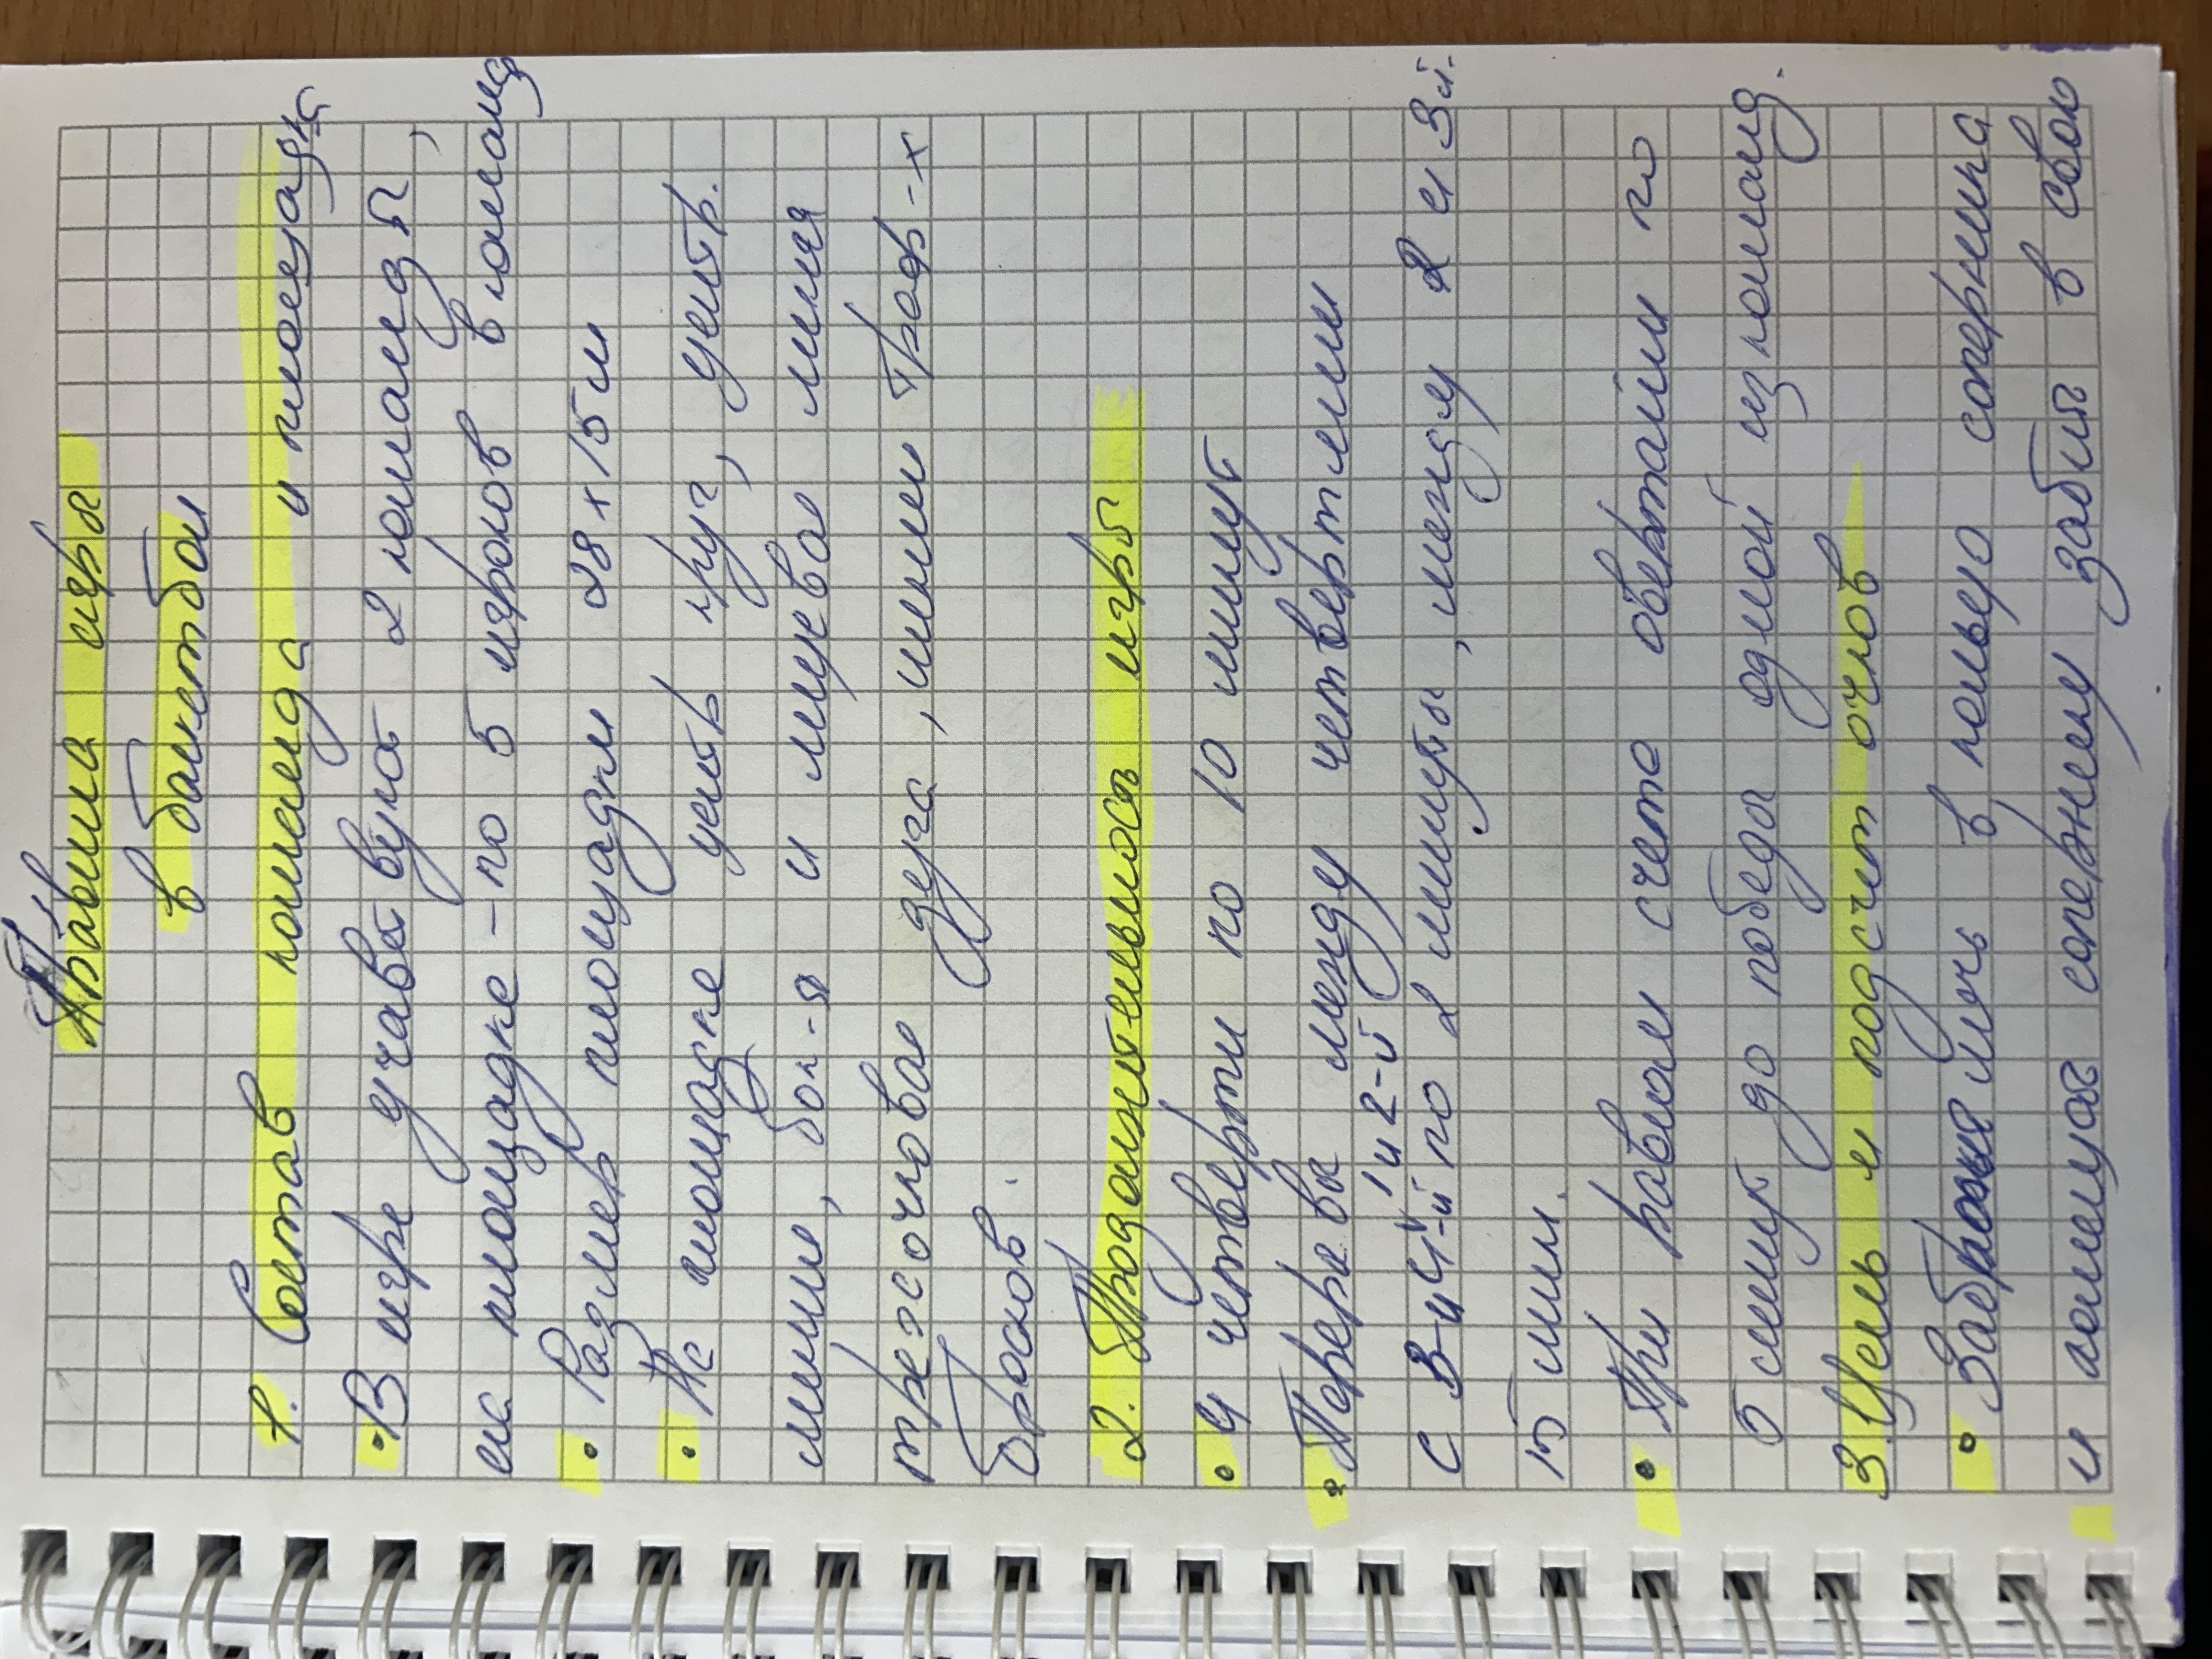 Правила игры
в баскетбол
1. Состав команда и площадка
• В игре участвуют 2 команды,
на площадке - по 5 игроков в команд
• Размер площадки 28 x 15 м
• На площадке центр круг, центр.
линии, бок-я и лицевая линия
трехочковая дуга, линии штраф-х
бросков.
2. Продолжительность игры
• 4 четверти по 10 минут
• Перерывы между четвертями
1 и 2-й
с 3-и 4-й по 2 минуты, между 2 и 3й.
15 мин.
• При равном счете овертайм по
5 минут до победы одной из команд.
3. Цель и подсчет очков
• Заброс мяч в кольцо соперника
и помешать сопернику забить в свою